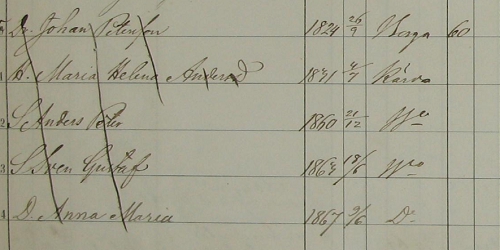 Dr. Johan Peterson 1824 26/9 Norga 60
H. Maria Helena Andersd 1831 4/7 Kärra
2 S Anders Peter 1860 21/12
3 S Sven Gustaf 1864 18/6
4 D. Anna Maria 1867 9/6 Do